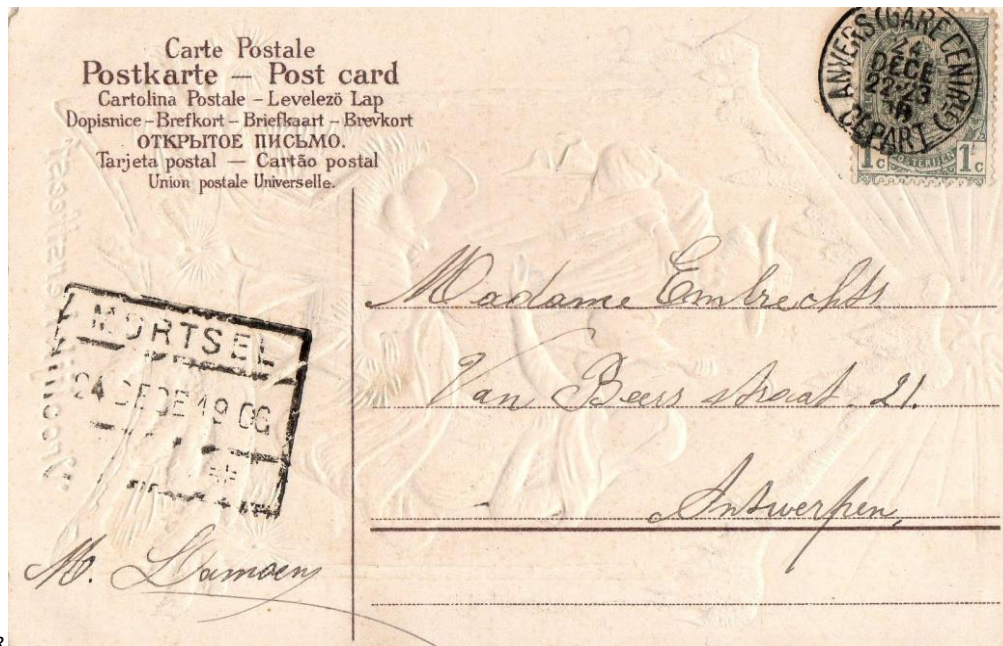 Carte Postale
Postkarte — Post card
Cartolina Postale – Levelezö Lap
Dopisnice – Brefkort – Briefkaart – Brevkort
ОТКРЫТОЕ ПИСЬМО.
Tarjeta postal — Cartão postal
Union postale Universelle.
ANVERS (GARE CENTRALE)
24
DECE
22-23
DEPART
1c 1c
Madame Embrechts
Van Beers straat 21.
Antwerpen,
MORTSEL
24 DECE 1906
M. Damoen